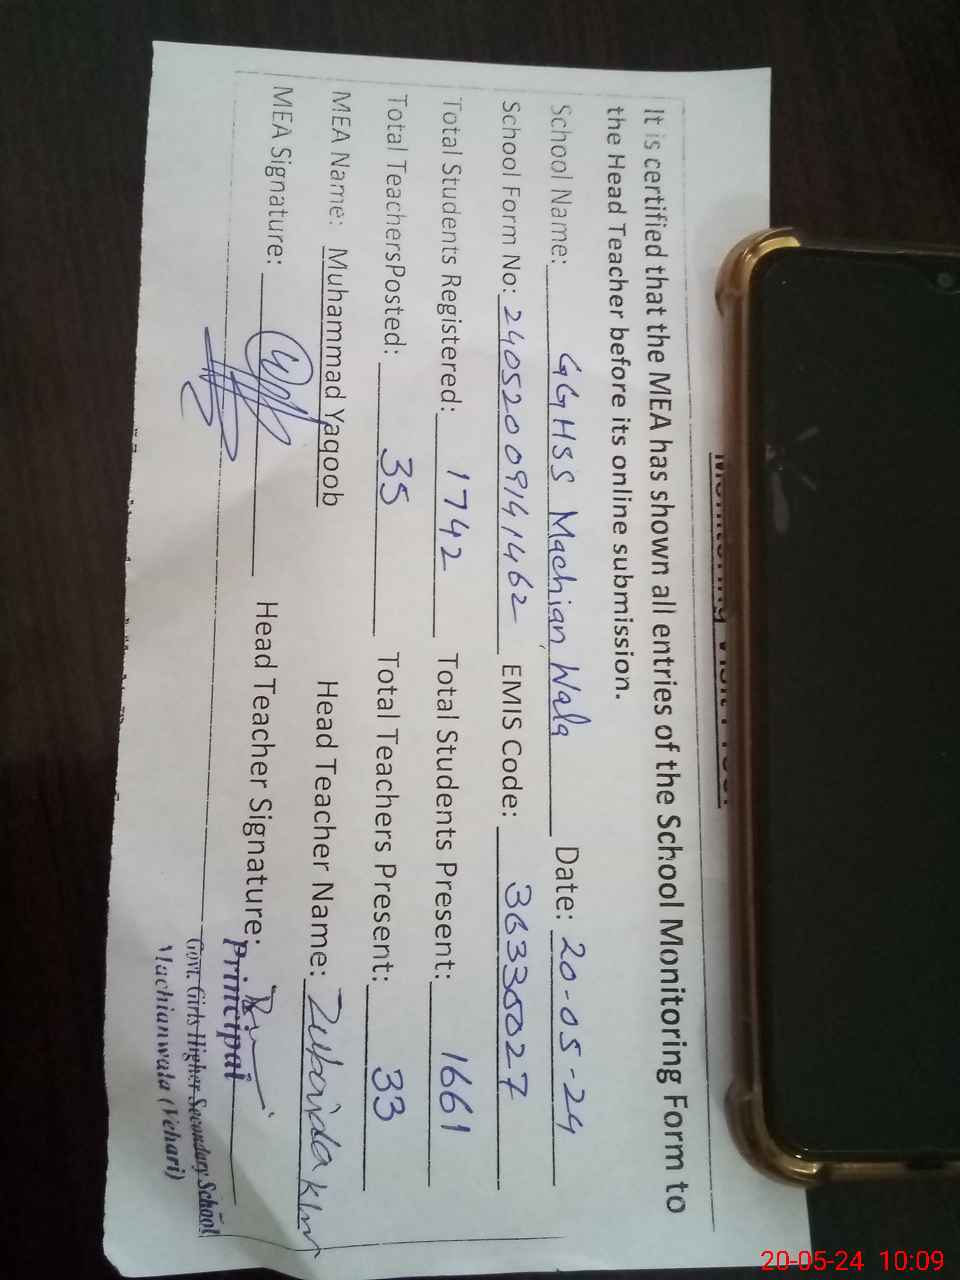 It is certified that the MEA has shown all entries of the School Monitoring Form to
the Head Teacher before its online submission.
School Name: GGHSS Machian Wala Date: 20-05-24
School Form No: 24052009141462 EMIS Code: 36330027
Total Students Registered: 1742 Total Students Present: 1661
Total TeachersPosted: 35 Total Teachers Present: 33
MEA Name: Muhammad Yaqoob Head Teacher Name: Zubaida
MEA Signature: Head Teacher Signature:
Principal
Govt. Girls Higher Secondary School
Machianwala (Vehari)
20-05-24 10:09